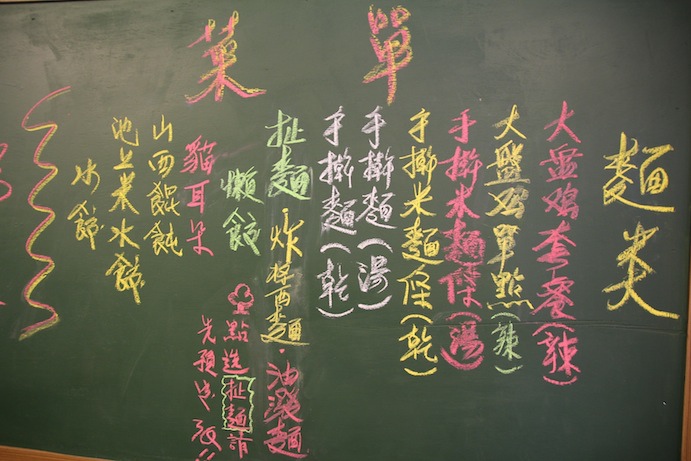 菜單
麵类
大盤鸡套餐(辣)
大盤鸡單點(辣)
手擀米麵條(湯)
手擀米麵條(乾)
手擀麵(湯)
手擀麵(乾)
扯麵·炸醬麵·油潑麵
懶
點选扯麵請
貓耳朵
先預
山西餛飩
池上水餃
水餃